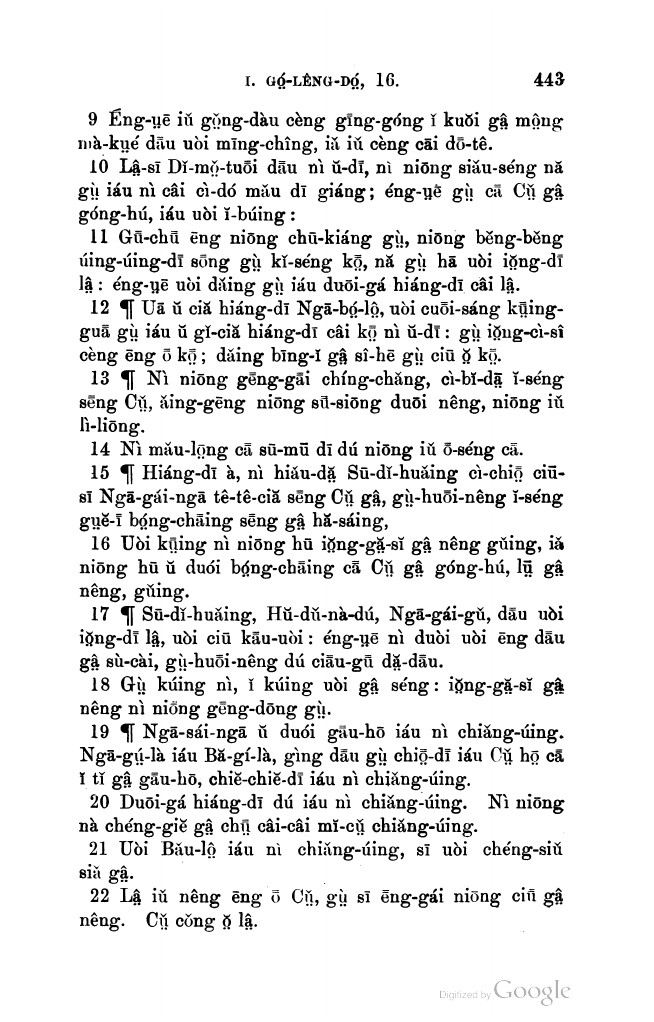 I. GÓ̤-LÊNG-DÓ̤, 16. 443
9 Éng-ṳē iŭ gŏ̤ng-dàu cèng gīng-góng ĭ kuŏi gậ mộng
mà-kṳé dāu uòi mīng-chîng, iă iŭ cèng cāi dō-tê.
10 Lậ-sī Dĭ-mŏ̤-tuōi dāu nì ŭ-dī, nì niōng siău-séng nă
gṳ̀ iáu nì câi cì-dó mău dī giáng; éng-ṳē gṳ̀ cā Cṳ̆ gậ
góng-hú, iáu uòi ĭ-búing:
11 Gū-chū ēng niōng chū-kiáng gṳ̀, niōng bĕng-bĕng
úing-úing-dī sōng gṳ̀ kĭ-séng kō̤, nă gṳ̀ hā uòi iŏ̤ng-dī
lậ: éng-ṳē uòi dăing gṳ̀ iáu duōi-gá hiáng-dī câi lậ.
12 ¶ Uā ŭ ciă hiáng-dī Ngā-bó̤-lộ, uòi cuōi-sáng kṳ̄ing-
guā gṳ̀ iáu ŭ gĭ-ciă hiáng-dī câi kō̤ nì ŭ-dī: gṳ̀ iŏ̤ng-cì-sî
cèng ēng ō kō̤; dăing bīng-I gậ sî-hē gṳ̀ ciū ŏ̤ kō̤.
13 ¶ Nì niōng gēng-gāi chíng-chăng, cì-bĭ-dạ̄ ĭ-séng
sēng Cṳ̆, ăing-gēng niōng sū-siōng duōi nêng, niōng iŭ
lì-liōng.
14 Nì mău-lọ̄ng cā sū-mū dī dú niōng iŭ ō-séng cā.
15 ¶ Hiáng-dī à, nì hiău-dặ Sū-dĭ-huăing cì-chiō̤ ciū-
sī Ngā-gái-ngā tê-tê-ciă sēng Cṳ̆ gậ, gṳ̀-huōi-nêng ĭ-séng
gṳĕ-ī bó̤ng-chāing sēng gậ hă-sáing,
16 Uòi kṳ̄ing nì niōng hū iŏ̤ng-gặ-sĭ gậ nêng gŭing, iă
niōng hū ŭ duói bó̤ng-chāing cā Cṳ̆ gậ góng-hú, lṳ̄ gậ
nêng, gŭing.
17 ¶ Sū-dĭ-huăing, Hŭ-dŭ-nà-dú, Ngā-gái-gŭ, dāu uòi
iŏ̤ng-dī lậ, uòi ciū kāu-uòi: éng-ṳē nì duòi uòi ēng dāu
gậ sù-cài, gṳ̀-huōi-nêng dú ciāu-gū dặ-dāu.
18 Gṳ̀ kúing nì, ĭ kúing uòi gậ séng: iŏ̤ng-gặ-sĭ gậ
nêng nì niōng gēng-dōng gṳ̀.
19 ¶ Ngā-sái-ngā ŭ duói gău-hō iáu nì chiăng-úing.
Ngā-gṳ́-là iáu Bă-gí-là, gìng dāu gṳ̀ chiō̤-dī iáu Cṳ̆ hō̤ cā
I tĭ gậ gău-hō, chiĕ-chiĕ-dī iáu nì chiăng-úing.
20 Duōi-gá hiáng-dī dú iáu nì chiăng-úing. Nì niōng
nà chéng-giĕ gậ chṳ̄ câi-câi mĭ-cṳ̆ chiăng-úing.
21 Uòi Bău-lộ iáu nì chiăng-úing, sī uòi chéng-siŭ
siă gậ.
22 Lậ iŭ nêng ēng ō Cṳ̆, gṳ̀ sī ēng-gái niōng ciū gậ
nêng. Cṳ̆ cŏng ŏ̤ lậ.
Digitized by Google